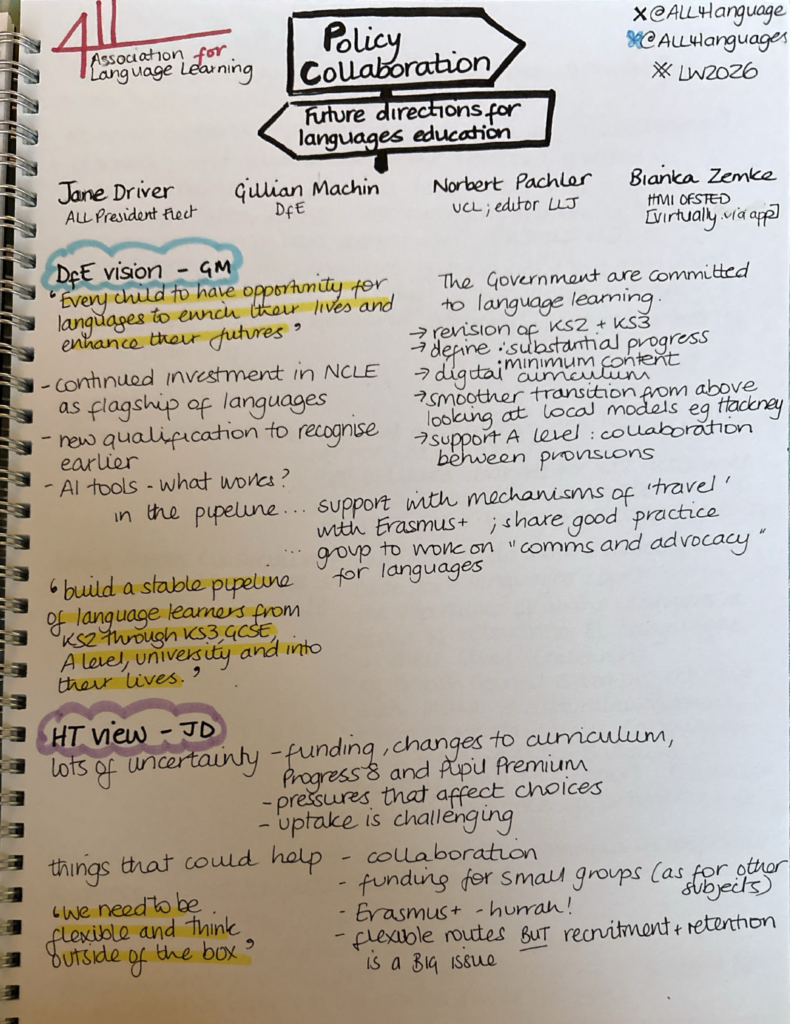 All
Association for
Language Learning
Policy
Collaboration
Future directions for
languages education
X@ALL4language
@ALL4languages
※ LW2026
Jane Driver
ALL President Elect
Gillian Machin
DfE
Norbert Pachler
UCL; editor LLJ
Bianka Zemke
HMI OFSTED
[virtually via app]
DfE vision - GM
'Every child to have opportunity for
languages to enrich their lives and
enhance their futures'
- continued investment in NCLE
as flagship of languages
- new qualification to recognise
earlier
- AI tools - what works?
The Government are committed
to language learning.
→ revision of KS2 + KS3
→ define : substantial progress
: minimum content
→ digital curriculum
→ smoother transition from above
looking at local models eg Hackney
→ support A level : collaboration
between provisions
in the pipeline... support with mechanisms of 'travel'
with Erasmus+ ; share good practice
... group to work on "comms and advocacy"
for languages
'build a stable pipeline
of language learners from
KS2 through KS3, GCSE,
A level, university and into
their lives.'
HT view - JD
lots of uncertainty - funding, changes to curriculum,
Progress 8 and Pupil Premium
- pressures that affect choices
- uptake is challenging
things that could help - collaboration
- funding for small groups (as for other
subjects)
- Erasmus+ - hurrah!
- flexible routes BUT recruitment + retention
is a BIG issue
'we need to be
flexible and think
outside of the box'